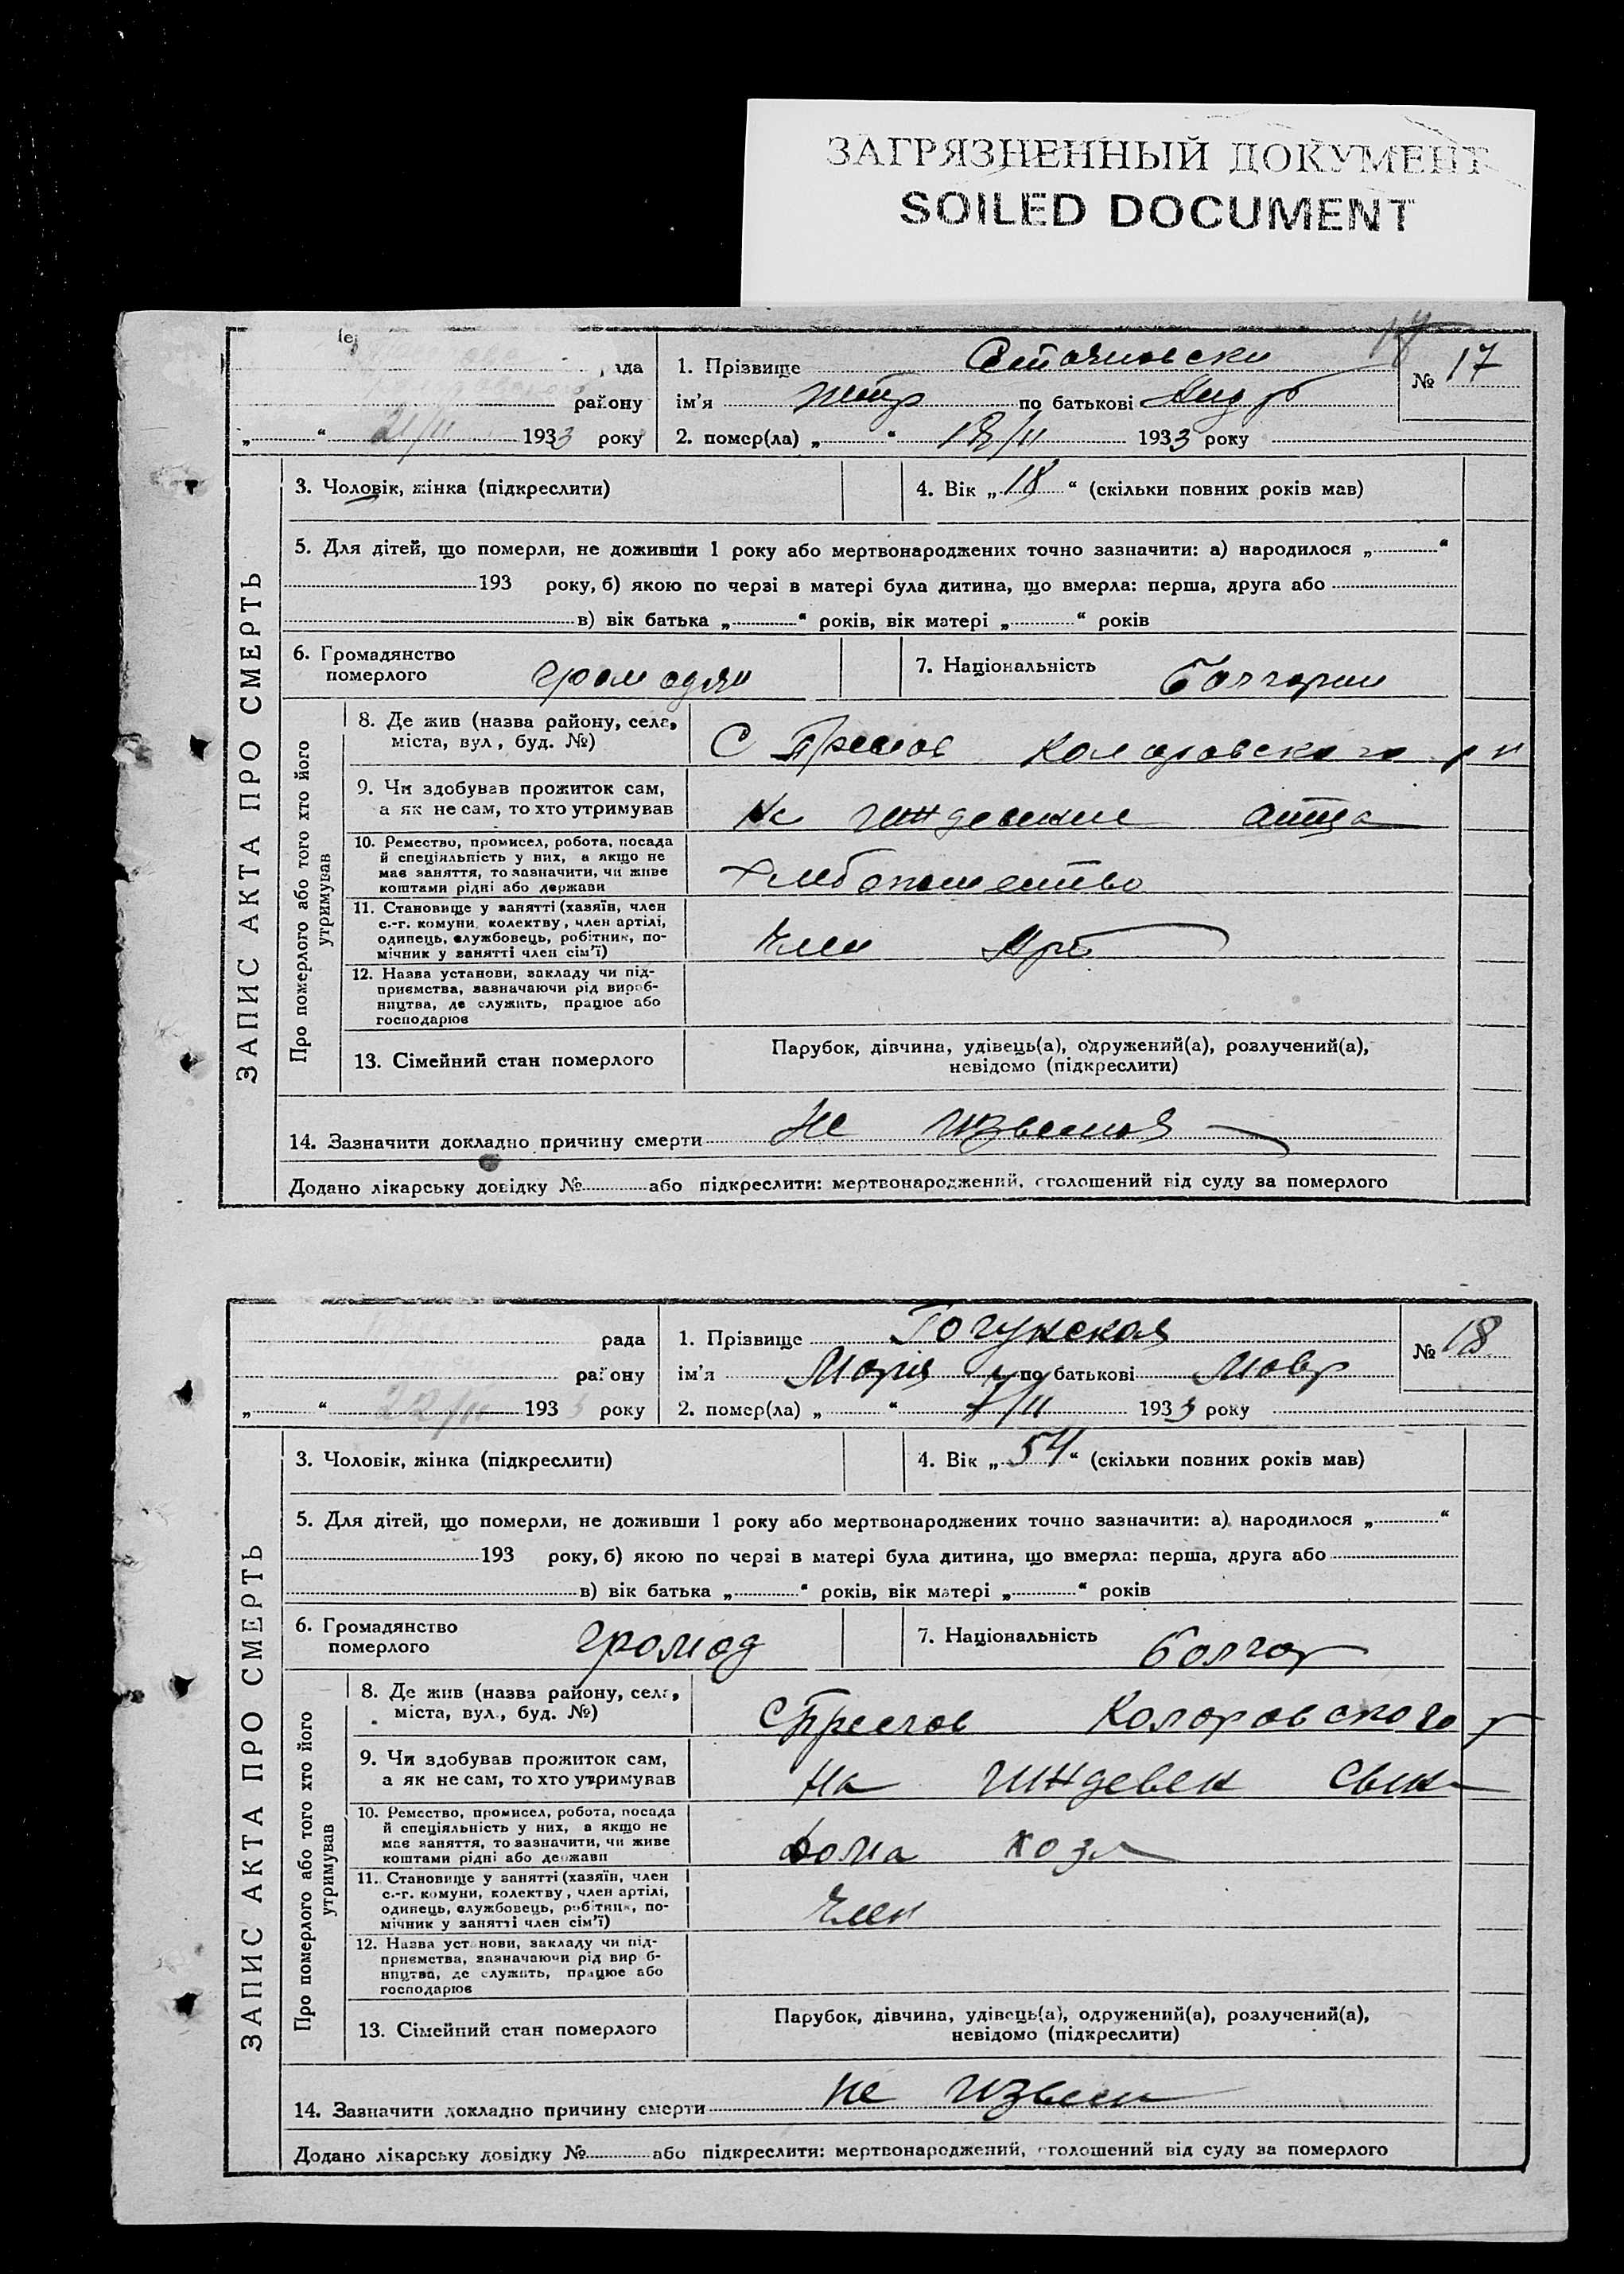 ЗАГРЯЗНЕННЫЙ ДОКУМЕНТ
SOILED DOCUMENT
ЗАПИС АКТА ПРО СМЕРТЬ
рада
району
„ “ 21/II 1933 року
1. Прізвище
№ 17
ім'я Петр по батькові
2. помер(ла) „ “ 18/II 1933 року
3. Чоловік, жінка (підкреслити)
4. Вік „18“ (скільки повних років мав)
5. Для дітей, що померли, не доживши 1 року або мертвонароджених точно зазначити: а) народилося „ “
193 року, б) якою по черзі в матері була дитина, що вмерла: перша, друга або
в) вік батька „ “ років, вік матері „ “ років
6. Громадянство померлого громадян
7. Національність болгарин
Про померлого або того хто його утримував
8. Де жив (назва району, села,
міста, вул., буд. №)
С Преслов Коларовского р н
9. Чи здобував прожиток сам,
а як не сам, то хто утримував
На иждевении отца
10. Ремество, промисел, робота, посада
й спеціяльність у них, а якщо не
має заняття, то зазначити, чи живе
коштами рідні або держави
11. Становище у занятті (хазяїн, член
с.-г. комуни, колективу, член артілі,
одинець, службовець, робітник, по-
мічник у занятті член сім'ї)
член Арт
12. Назва установи, закладу чи під-
приємства, зазначаючи рід вироб-
ництва, де служить, працює або
господарює
13. Сімейний стан померлого
Парубок, дівчина, удівець(а), одружений(а), розлучений(а),
невідомо (підкреслити)
14. Зазначити докладно причину смерти Не извесно
Додано лікарську довідку № або підкреслити: мертвонароджений, оголошений від суду за померлого
ЗАПИС АКТА ПРО СМЕРТЬ
рада
району
„ “ 22/II 1933 року
1. Прізвище Гогунская
№ 18
ім'я Марія по батькові Мавр
2. помер(ла) „ “ 7/II 1933 року
3. Чоловік, жінка (підкреслити)
4. Вік „54“ (скільки повних років мав)
5. Для дітей, що померли, не доживши 1 року або мертвонароджених точно зазначити: а) народилося „ “
193 року, б) якою по черзі в матері була дитина, що вмерла: перша, друга або
в) вік батька „ “ років, вік матері „ “ років
6. Громадянство померлого громад
7. Національність болгар
Про померлого або того хто його утримував
8. Де жив (назва району, села,
міста, вул., буд. №)
С Преслов Коларовского р
9. Чи здобував прожиток сам,
а як не сам, то хто утримував
На иждевен сына
10. Ремество, промисел, робота, посада
й спеціяльність у них, а якщо не
має заняття, то зазначити, чи живе
коштами рідні або держави
Дома хоз
11. Становище у занятті (хазяїн, член
с.-г. комуни, колективу, член артілі,
одинець, службовець, робітник, по-
мічник у занятті член сім'ї)
член
12. Назва установи, закладу чи під-
приємства, зазначаючи рід вироб-
ництва, де служить, працює або
господарює
13. Сімейний стан померлого
Парубок, дівчина, удівець(а), одружений(а), розлучений(а),
невідомо (підкреслити)
14. Зазначити докладно причину смерти не извесн
Додано лікарську довідку № або підкреслити: мертвонароджений, оголошений від суду за померлого